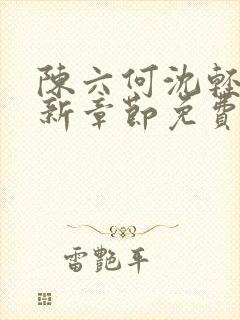 陳六何沈輕
新章節免費
雷艷平